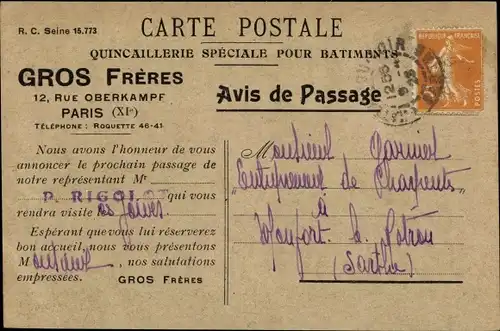 R. C. Seine 15.773
CARTE POSTALE
QUINCAILLERIE SPÉCIALE POUR BATIMENTS
GROS FRÈRES
12, RUE OBERKAMPF
PARIS (XIe)
TÉLÉPHONE : ROQUETTE 46-41
Avis de Passage
POSTES
Nous avons l'honneur de vous
annoncer le prochain passage de
notre représentant Mr
P. RIGOLOT qui vous
rendra visite ces jours
Espérant que vous lui réserverez
bon accueil, nous vous présentons
Monsieur, nos salutations
empressées. GROS FRÈRES
Monsieur
Entrepreneur de Charpente
à
Monfort le Rotrou
(Sarthe)